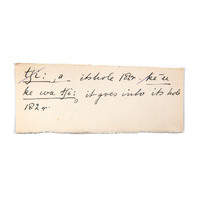 tʃi: , a its hole 182r ke u
ke wa tʃi: it goes into its hole
182r.